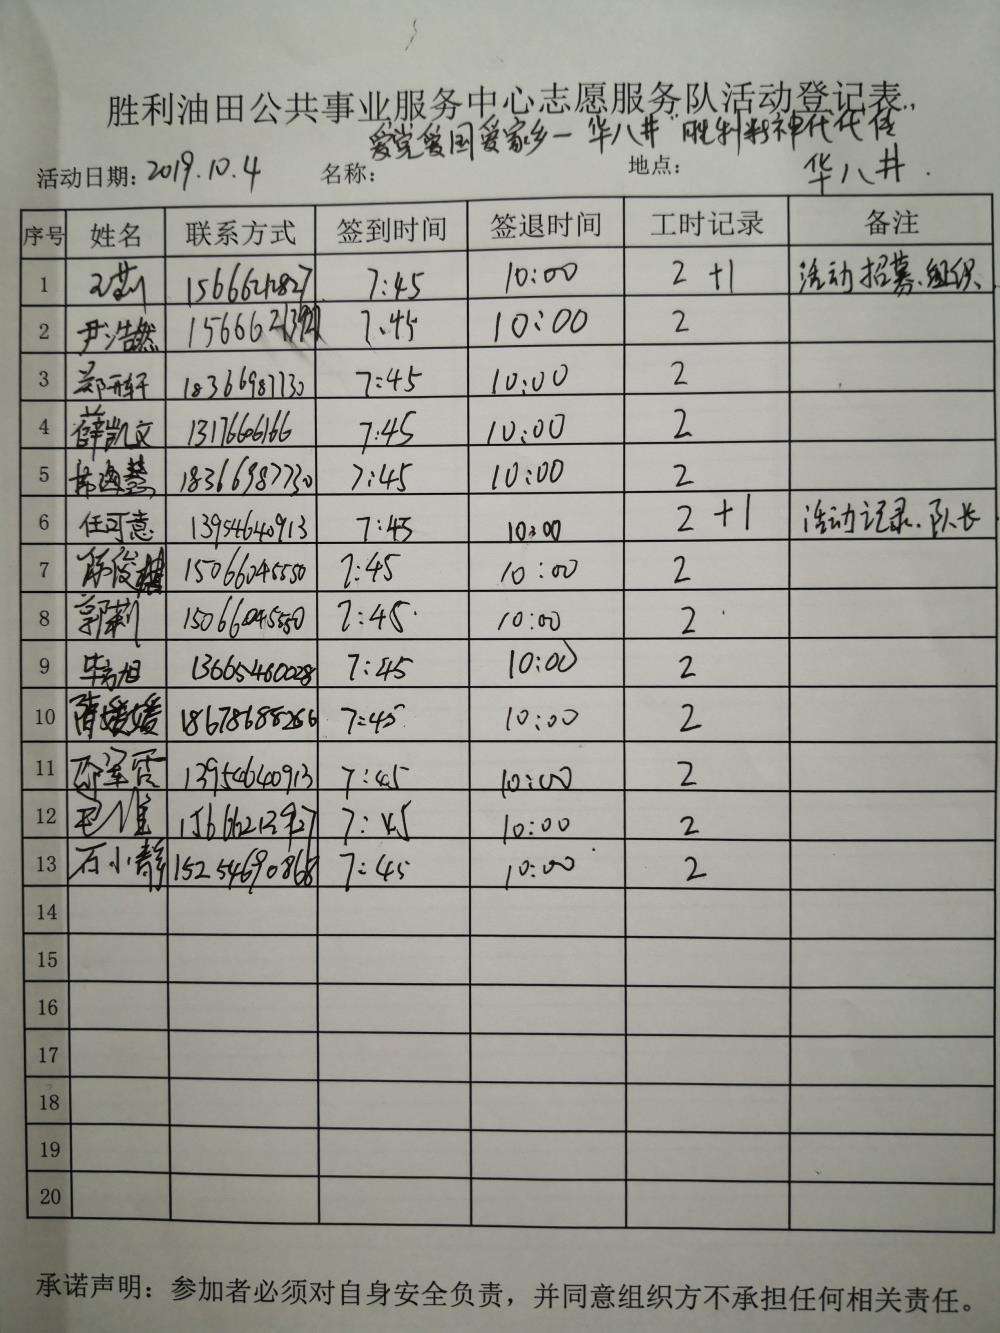 胜利油田公共事业服务中心志愿服务队活动登记表
爱党爱国爱家乡一华八井"胜利精神代代传
活动日期：2019.10.4 名称： 地点： 华八井.
序号 姓名 联系方式 签到时间 签退时间 工时记录 备注
1 7:45 10:00 2 +1 活动招募、组织、
2 尹浩然 7:45 10:00 2
3 郑开轩 18366987730 7:45 10:00 2
4 薛凯文 7:45 10:00 2
5 18366987730 7:45 10:00 2
6 任可意 13954640913 7:45 10:00 2 +1 活动记录、队长
7 15066045550 7:45 10:00 2
8 郭莉 15066045550 7:45 10:00 2
9 13665460028 7:45 10:00 2
10 18678688266 7:45 10:00 2
11 13954640913 7:45 10:00 2
12 15666213927 7:45 10:00 2
13 石小静 15254690868 7:45 10:00 2
14
15
16
17
18
19
20
承诺声明：参加者必须对自身安全负责，并同意组织方不承担任何相关责任。